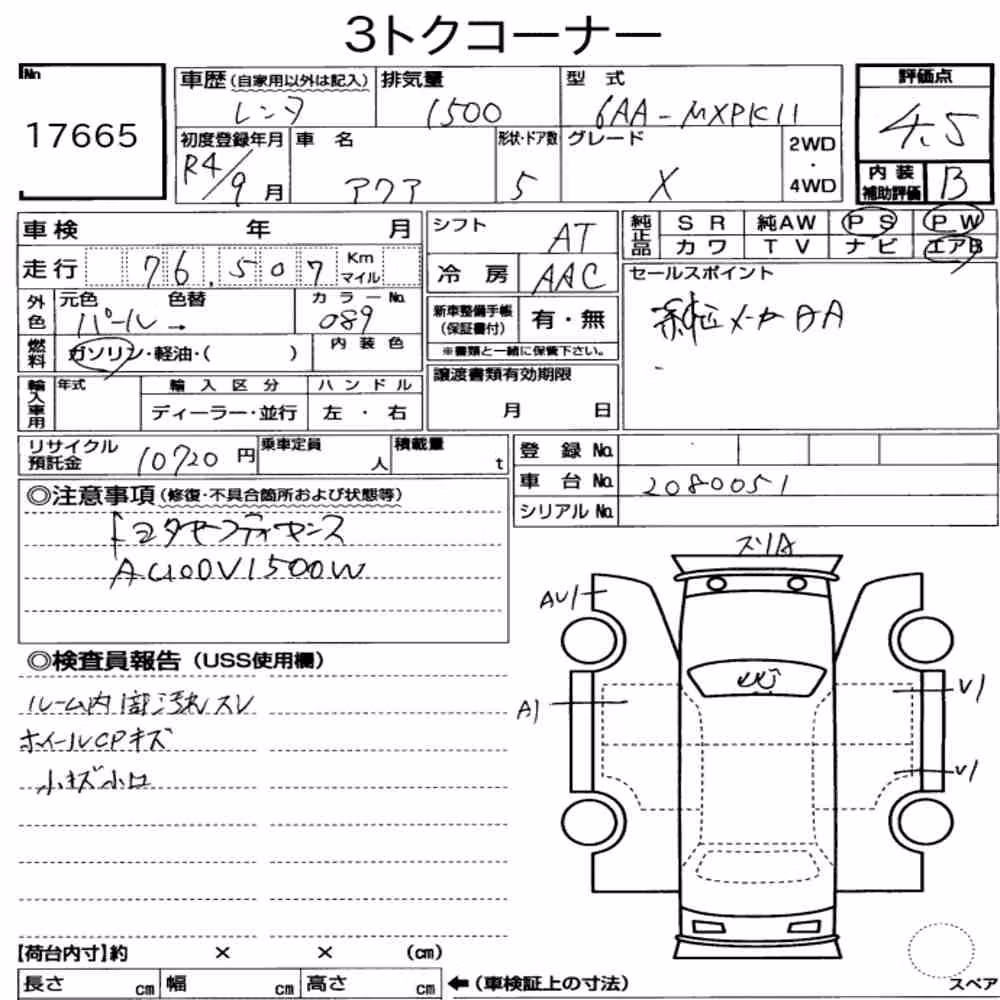 3トクコーナー
No
17665
車歴(自家用以外は記入) 排気量 型式 評価点
レンタ 1500 6AA-MXPK11 4.5
初度登録年月 車名 形状・ドア数 グレード 2WD・4WD 内装補助評価
R4/9月 アクア 5 X B
車検 年 月 シフト AT 純正品 SR 純AW PS PW
カワ TV ナビ エアB
走行 76,507 Km マイル 冷房 AAC セールスポイント
外色 元色 色替 カラーNo. 新車整備手帳(保証書付) 有・無
パール → 089 純正メーカAA
燃料 ガソリン・軽油・( ) 内装色 ※書類と一緒に保管下さい。
輸入車用 年式 輸入区分 ハンドル 譲渡書類有効期限
ディーラー・並行 左・右 月 日
リサイクル預託金 10720円 乗車定員 人 積載量 t 登録No.
車台No. 2080051
シリアルNo.
◎注意事項(修復・不具合箇所および状態等)
トヨタセーフティセンス
AC100V1500W
スリA
AU1
◎検査員報告(USS使用欄)
ルーム内部汚れスレ
A1
V1
ホイールCPキズ
V1
小キズ小凹
【荷台内寸】約 × × (cm)
長さ cm 幅 cm 高さ cm ←(車検証上の寸法)
スペア